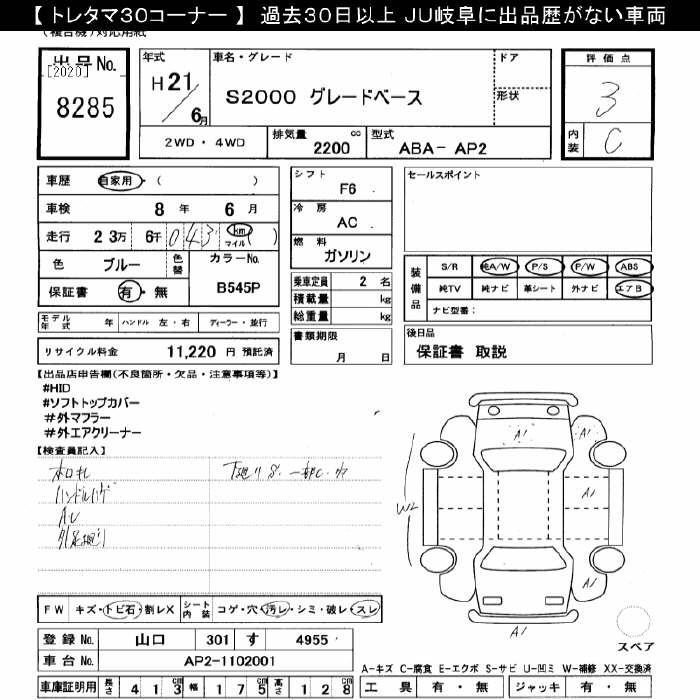 【 トレタマ３０コーナー 】 過去３０日以上 ＪＵ岐阜に出品歴がない車両
(複合機)対応用紙
出品 No.
[2020]
8285
年式
H21/6月
車名・グレード
S2000 グレードベース
ドア
形状
評価点
3
内装
C
2WD・4WD
排気量 cc
2200
型式
ABA- AP2
車歴 自家用・( )
車検 8 年 6 月
走行 2 3万 6千 0 4 3 km マイル ( )
色 ブルー 色替 カラーNo.
保証書 有・無 B545P
シフト F6
冷房 AC
燃料 ガソリン
乗車定員 2 名
積載量 kg
総重量 kg
セールスポイント
装備品
S/R 純A/W P/S P/W ABS
純TV 純ナビ 革シート 外ナビ エアB
ナビ型番:
モデル年式 年 ハンドル 左・右 ディーラー・並行
リサイクル料金 11,220 円 預託済
書類期限
月 日
後日品
保証書 取説
【出品店申告欄(不良箇所・欠品・注意事項等)】
#HID
#ソフトトップカバー
#外マフラー
#外エアクリーナー
【検査員記入】
ハンドルハゲ
下廻りS.一部C.
A1
A1
A1
A1
W2
FW キズ・トビ石・割レX シート内装 コゲ・穴・汚レ・シミ・破レ・スレ
登録 No. 山口 301 す 4955
車台 No. AP2-1102001
車庫証明用 長さ 4 1 3 cm 幅 1 7 5 cm 高さ 1 2 8 cm
スペア
A-キズ C-腐食 E-エクボ S-サビ U-凹ミ W-補修 XX-交換済
工具 有・無 ジャッキ 有・無